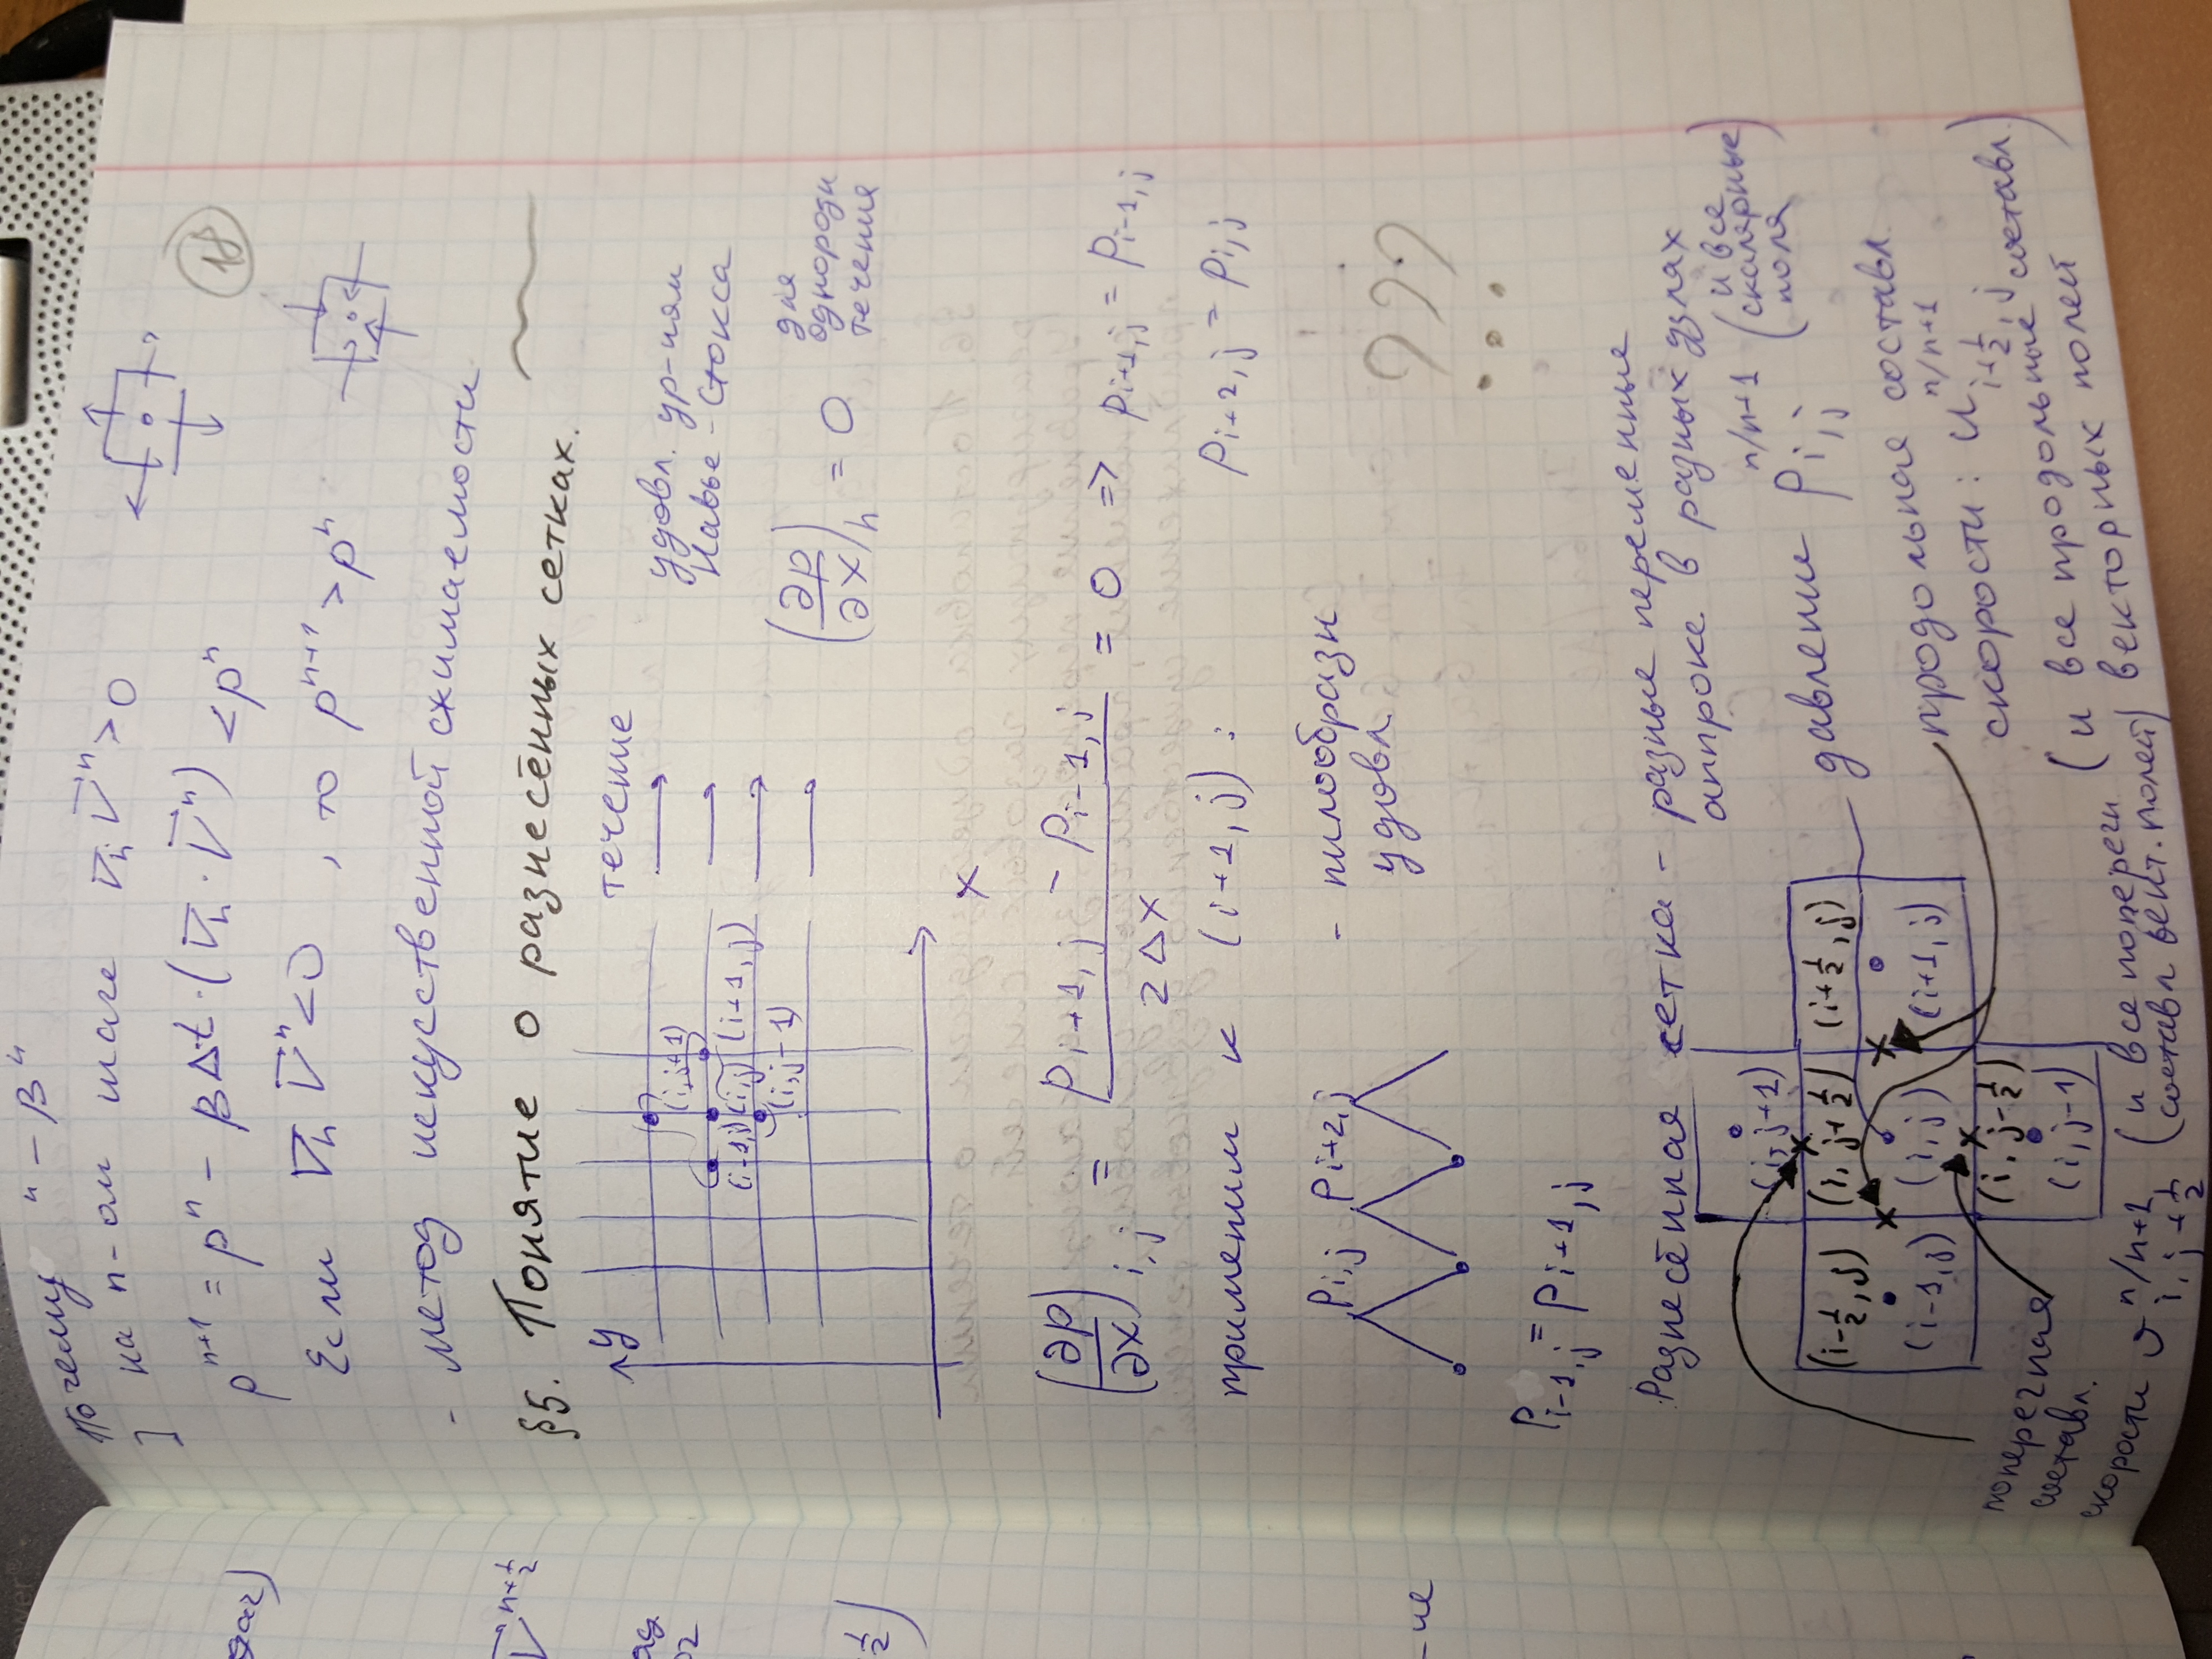 Почему " - β "
] на n-ом шаге ∇ₕ V⃗ⁿ > 0
pⁿ⁺¹ = pⁿ - βΔt · (∇ₕ · V⃗ⁿ) < pⁿ
18
Если ∇ₕ V⃗ⁿ < 0 , то pⁿ⁺¹ > pⁿ
- метод искусственной сжимаемости
§5. Понятие о разнесённых сетках.
y
течение
(i,j+1)
(i-1,j) (i,j) (i+1,j)
(i,j-1)
x
удовл. ур-иям
Навье-Стокса
(∂p/∂x)ₕ = 0 для
однородн
течения
(∂p/∂x) i,j = (p i+1,j - p i-1,j) / 2Δx = 0 => p i+1,j = p i-1,j
применим к (i+1,j) : p i+2,j = p i,j
p i,j p i+2,j - пилообразн
удовл.
???
p i-1,j = p i+1,j
Разнесённая сетка - разные переменные
аппрокс. в разных узлах
(i,j+1)
(i-½,j) (i,j+½) (i+½,j)
(i-1,j) (i,j) (i+1,j)
(i,j-½)
(i,j-1)
давление p i,j n/n+1 (и все
скалярные
поля)
продольная составл.
скорости: u i+½,j n/n+1
(и все продольные составл.
векторных полей)
поперечная
составл.
скорости v i,j+½ n/n+1 (и все поперечн
составл вект. полей)
дач)
V⃗ n+½
½)
-ие